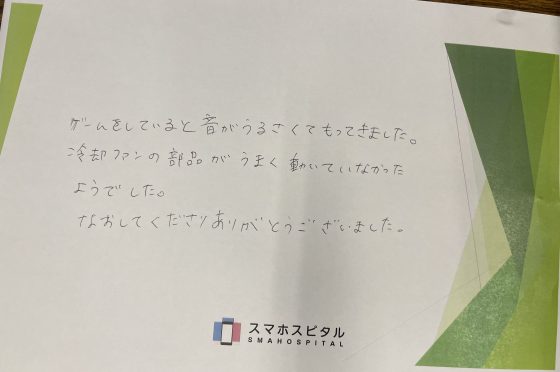 ゲームをしていると音がうるさくてもってきました。
冷却ファンの部品がうまく動いていなかった
ようでした。
なおしてくださりありがとうございました。
スマホスピタル
SMAHOSPITAL